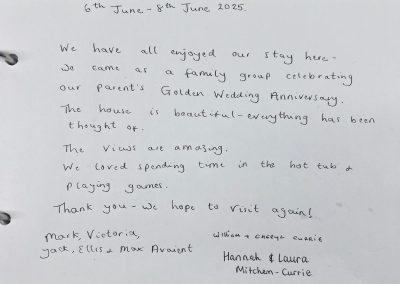 6th June - 8th June 2025.
We have all enjoyed our stay here -
We came as a family group celebrating
our parent's Golden Wedding Anniversary.
The house is beautiful - everything has been
thought of.
The views are amazing.
We loved spending time in the hot tub &
playing games.
Thank you - we hope to visit again!
Mark, Victoria,
Jack, Ellis & Max Avaient
William & Cheryl Currie
Hannah & Laura
Mitchem-Currie